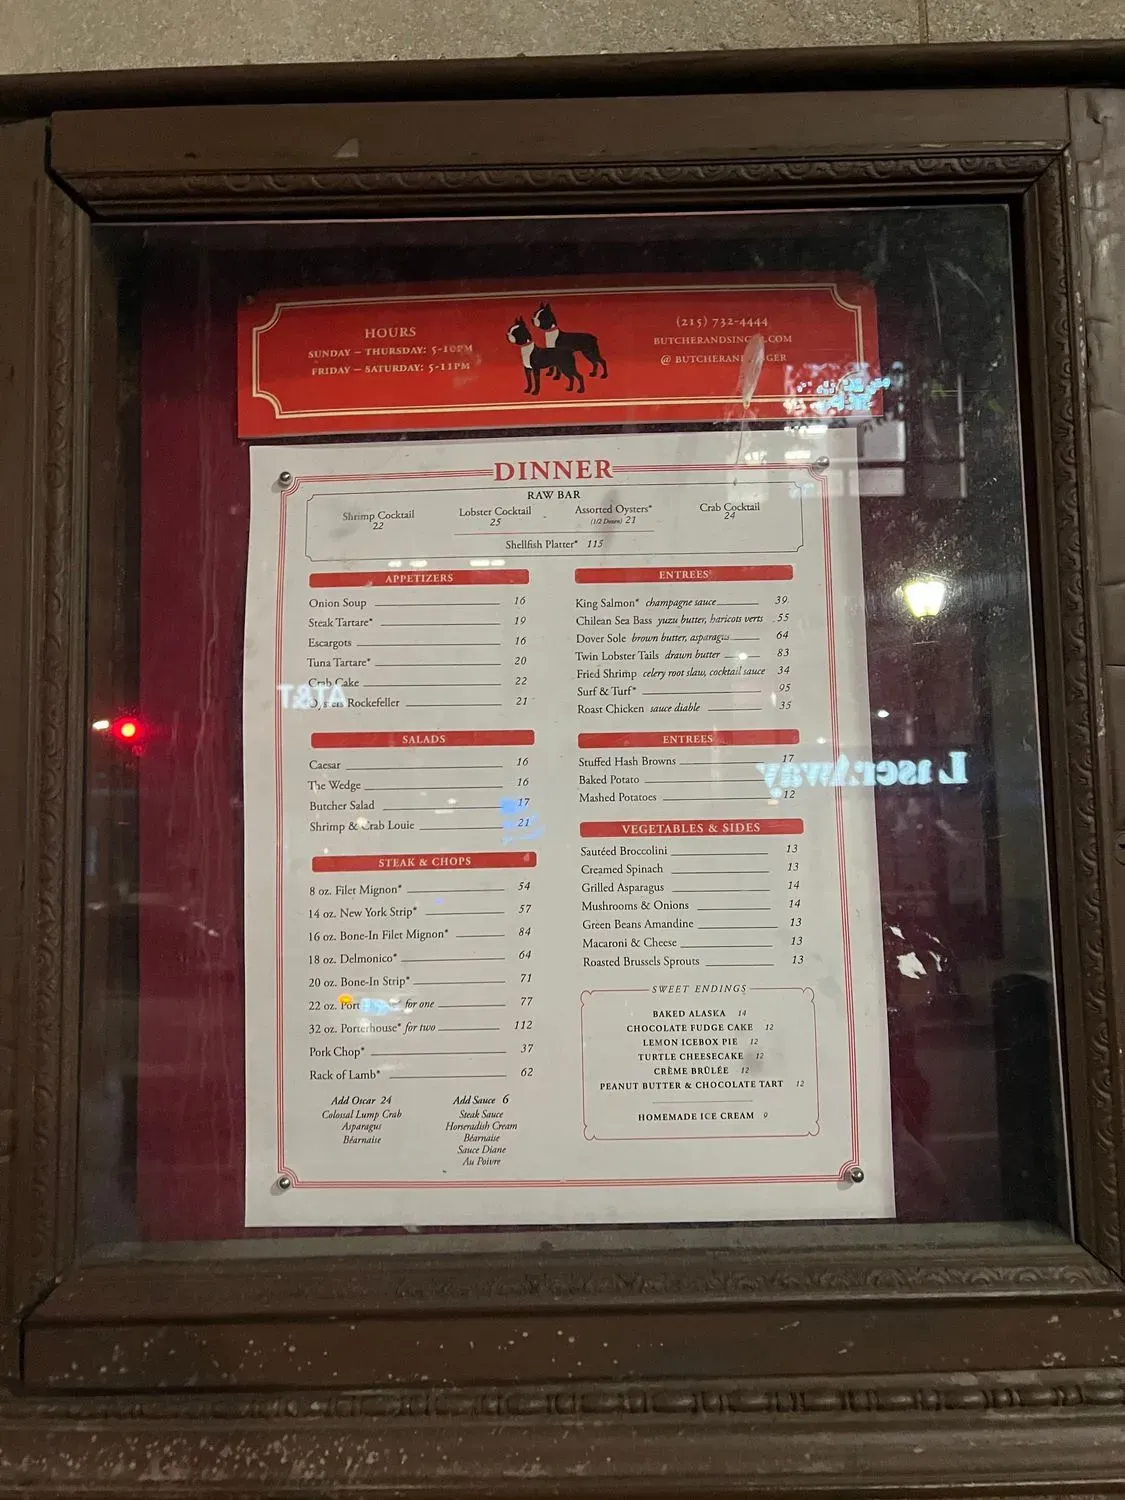 HOURS
SUNDAY – THURSDAY: 5-10PM
FRIDAY – SATURDAY: 5-11PM
(215) 732-4444
BUTCHERANDSINGER.COM
@ BUTCHERANDSINGER
DINNER
RAW BAR
Shrimp Cocktail 22
Lobster Cocktail 25
Assorted Oysters* (1/2 Dozen) 21
Crab Cocktail 24
Shellfish Platter* 115
APPETIZERS
Onion Soup 16
Steak Tartare* 19
Escargots 16
Tuna Tartare* 20
Crab Cake 22
Oysters Rockefeller 21
SALADS
Caesar 16
The Wedge 16
Butcher Salad 17
Shrimp & Crab Louie 21
STEAK & CHOPS
8 oz. Filet Mignon* 54
14 oz. New York Strip* 57
16 oz. Bone-In Filet Mignon* 84
18 oz. Delmonico* 64
20 oz. Bone-In Strip* 71
22 oz. Port for one 77
32 oz. Porterhouse* for two 112
Pork Chop* 37
Rack of Lamb* 62
Add Oscar 24
Colossal Lump Crab
Asparagus
Béarnaise
Add Sauce 6
Steak Sauce
Horseradish Cream
Béarnaise
Sauce Diane
Au Poivre
ENTREES
King Salmon* champagne sauce 39
Chilean Sea Bass yuzu butter, haricots verts 55
Dover Sole brown butter, asparagus 64
Twin Lobster Tails drawn butter 83
Fried Shrimp celery root slaw, cocktail sauce 34
Surf & Turf* 95
Roast Chicken sauce diable 35
ENTREES
Stuffed Hash Browns 17
Baked Potato
Mashed Potatoes 12
VEGETABLES & SIDES
Sautéed Broccolini 13
Creamed Spinach 13
Grilled Asparagus 14
Mushrooms & Onions 14
Green Beans Amandine 13
Macaroni & Cheese 13
Roasted Brussels Sprouts 13
SWEET ENDINGS
BAKED ALASKA 14
CHOCOLATE FUDGE CAKE 12
LEMON ICEBOX PIE 12
TURTLE CHEESECAKE 12
CRÈME BRÛLÉE 12
PEANUT BUTTER & CHOCOLATE TART 12
HOMEMADE ICE CREAM 9
AT&T
LaserAway